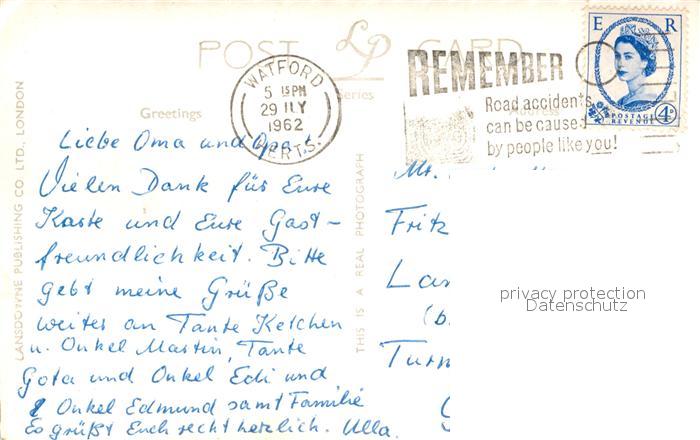 POST LP CARD
Series
WATFORD
5 15 PM
29 JLY
1962
HERTS.
REMEMBER
Road accidents
can be caused
by people like you!
E R
POSTAGE
REVENUE
4D
Greetings
Address
Liebe Oma und Opa!
Vielen Dank für Eure
Karte und Eure Gast-
freundlichkeit. Bitte
gebt meine Grüße
weiter an Tante Ketchen
u. Onkel Martin, Tante
Gota und Onkel Edi und
Onkel Edmund samt Familie
Es grüßt Euch recht herzlich. Ulla.
LANSDOWNE PUBLISHING CO LTD., LONDON
THIS IS A REAL PHOTOGRAPH
Mr.
Fritz
Lan
(b.
Turn
privacy protection
Datenschutz